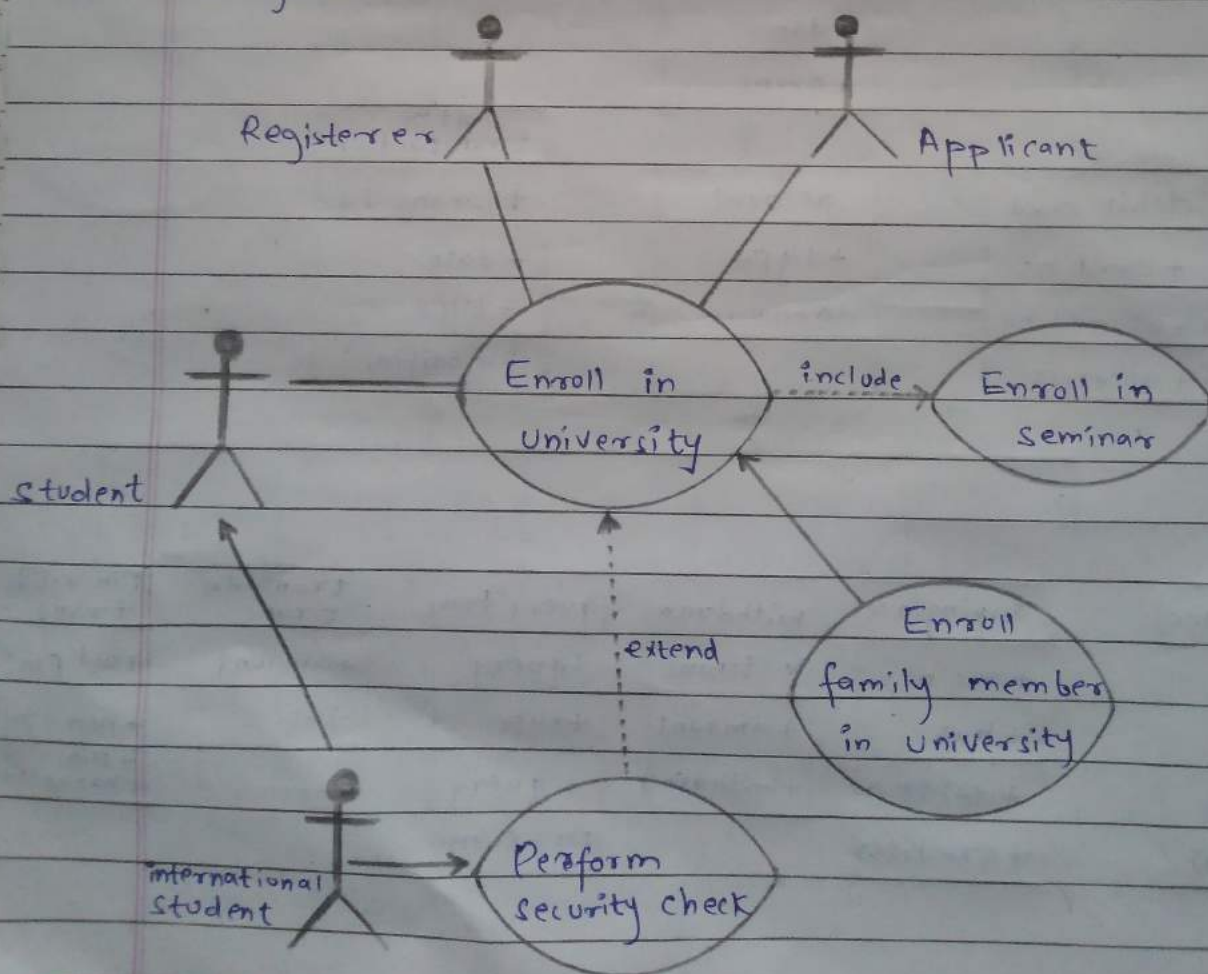 Registerer
Applicant
Enroll in
university
include
Enroll in
seminar
student
extend
Enroll
family member
in university
international
student
Perform
security check